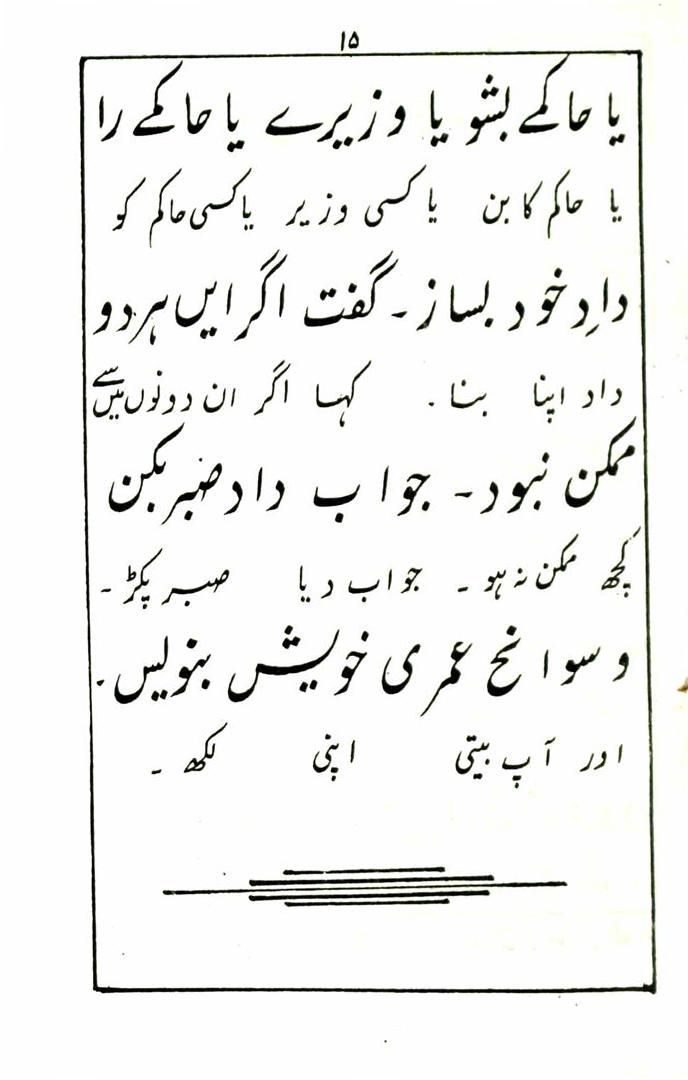 ۱۵
یا حاکمے بشو یا وزیرے یا حاکمے را
یا حاکم کا بن یا کسی وزیر یا کسی حاکم کو
دادِ خود بساز۔ گفت اگر ایں ہر دو
داد اپنا بنا۔ کہا اگر ان دونوں میں سے
ممکن نبود۔ جواب داد صبر بکن
کچھ ممکن نہ ہو۔ جواب دیا صبر پکڑ۔
و سوانح عمری خویش بنویس۔
اور آپ بیتی اپنی لکھ۔